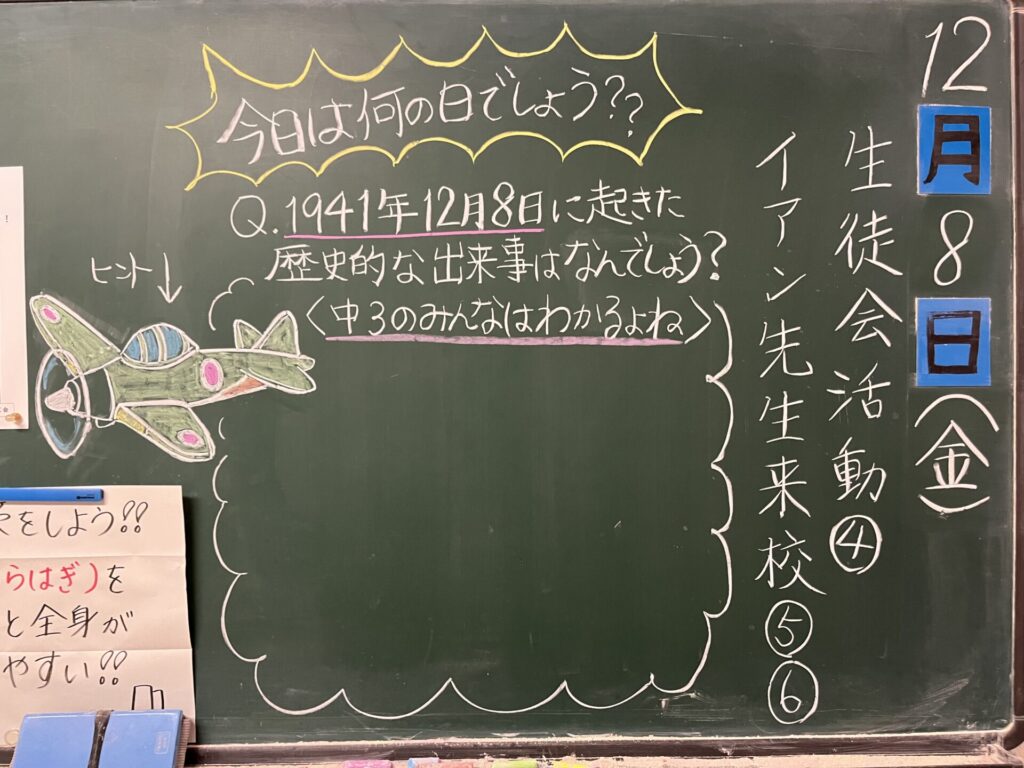 12月8日(金)
生徒会活動④
イアン先生来校⑤⑥
今日は何の日でしょう??
Q.1941年12月8日に起きた
歴史的な出来事はなんでしょう?
〈中3のみんなはわかるよね〉
ヒント↓
をしよう!!
らはぎ)を
と全身が
やすい!!